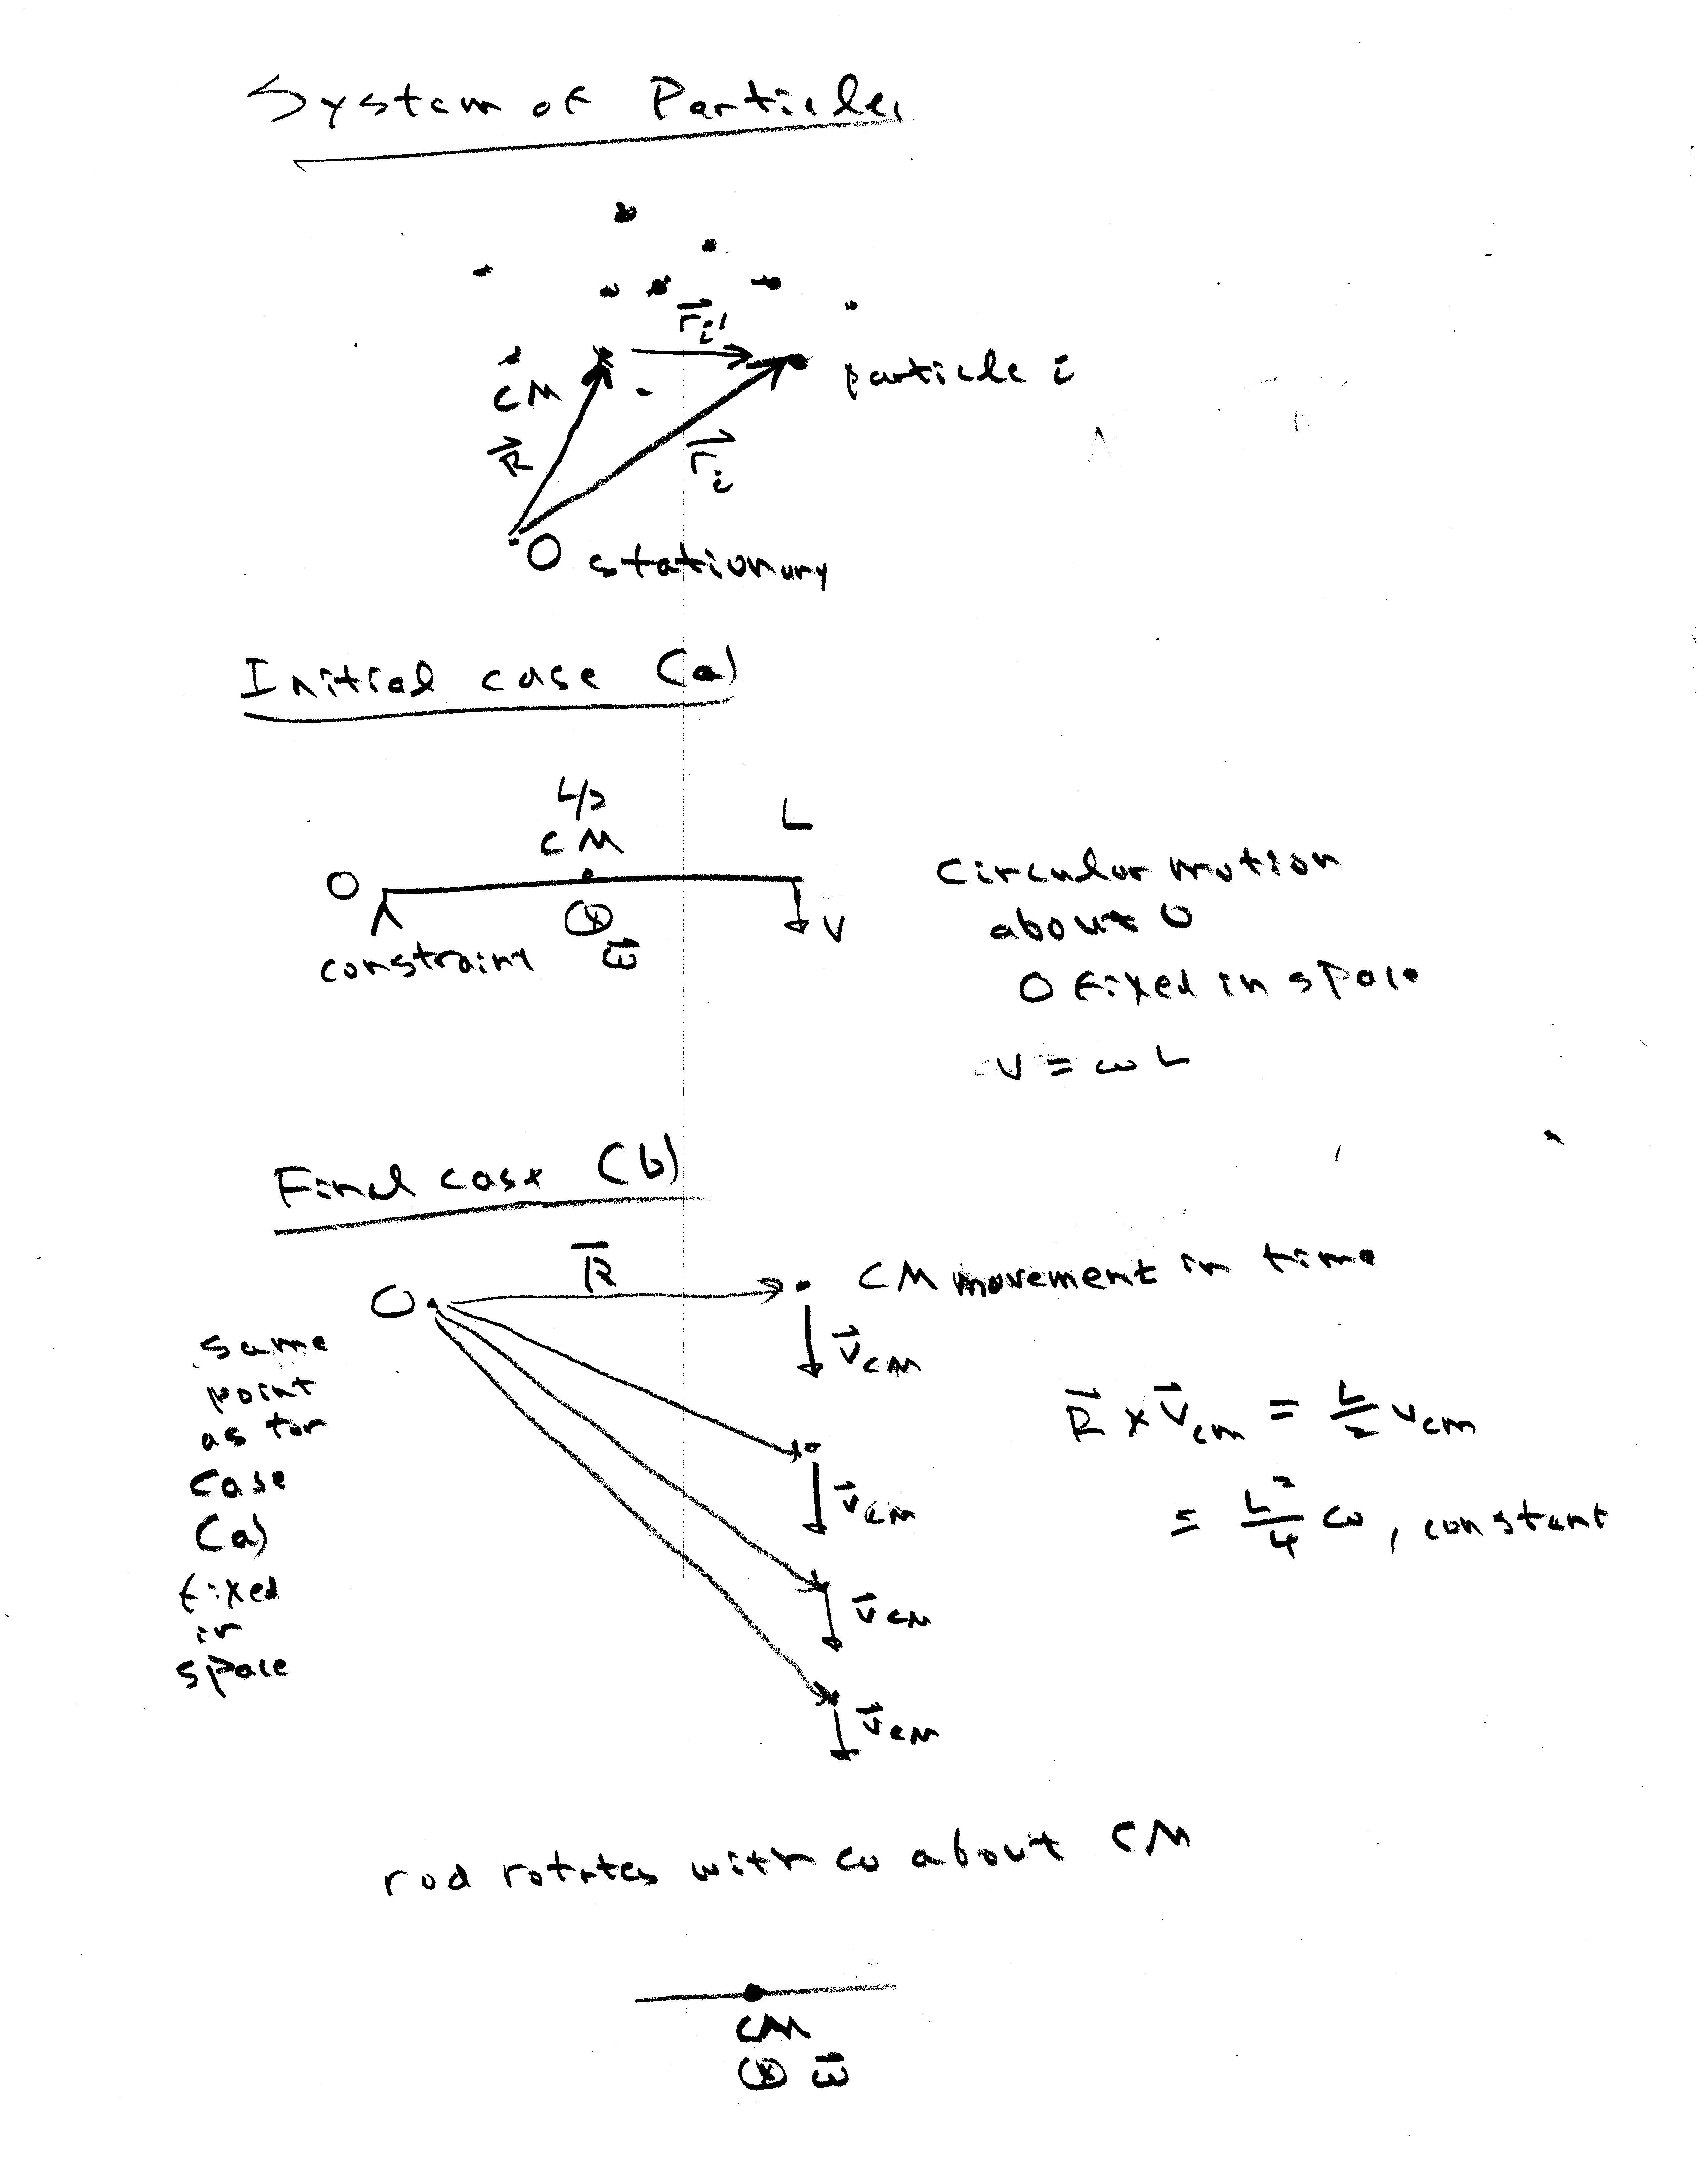 System of Particles
r⃗ᵢ'
CM
particle i
R⃗
r⃗ᵢ
O stationary
Initial case (a)
L/2
L
CM
O
V
constraint
ω⃗
Circular motion
about O
O fixed in space
V = ω L
Final case (b)
R⃗
O
CM movement in time
same
point
as for
case
(a)
fixed
in
space
V⃗CM
R⃗ × V⃗cm = L/2 Vcm
V⃗CM
= L²/4 ω, constant
V⃗CM
V⃗CM
rod rotates with ω about CM
CM
ω⃗